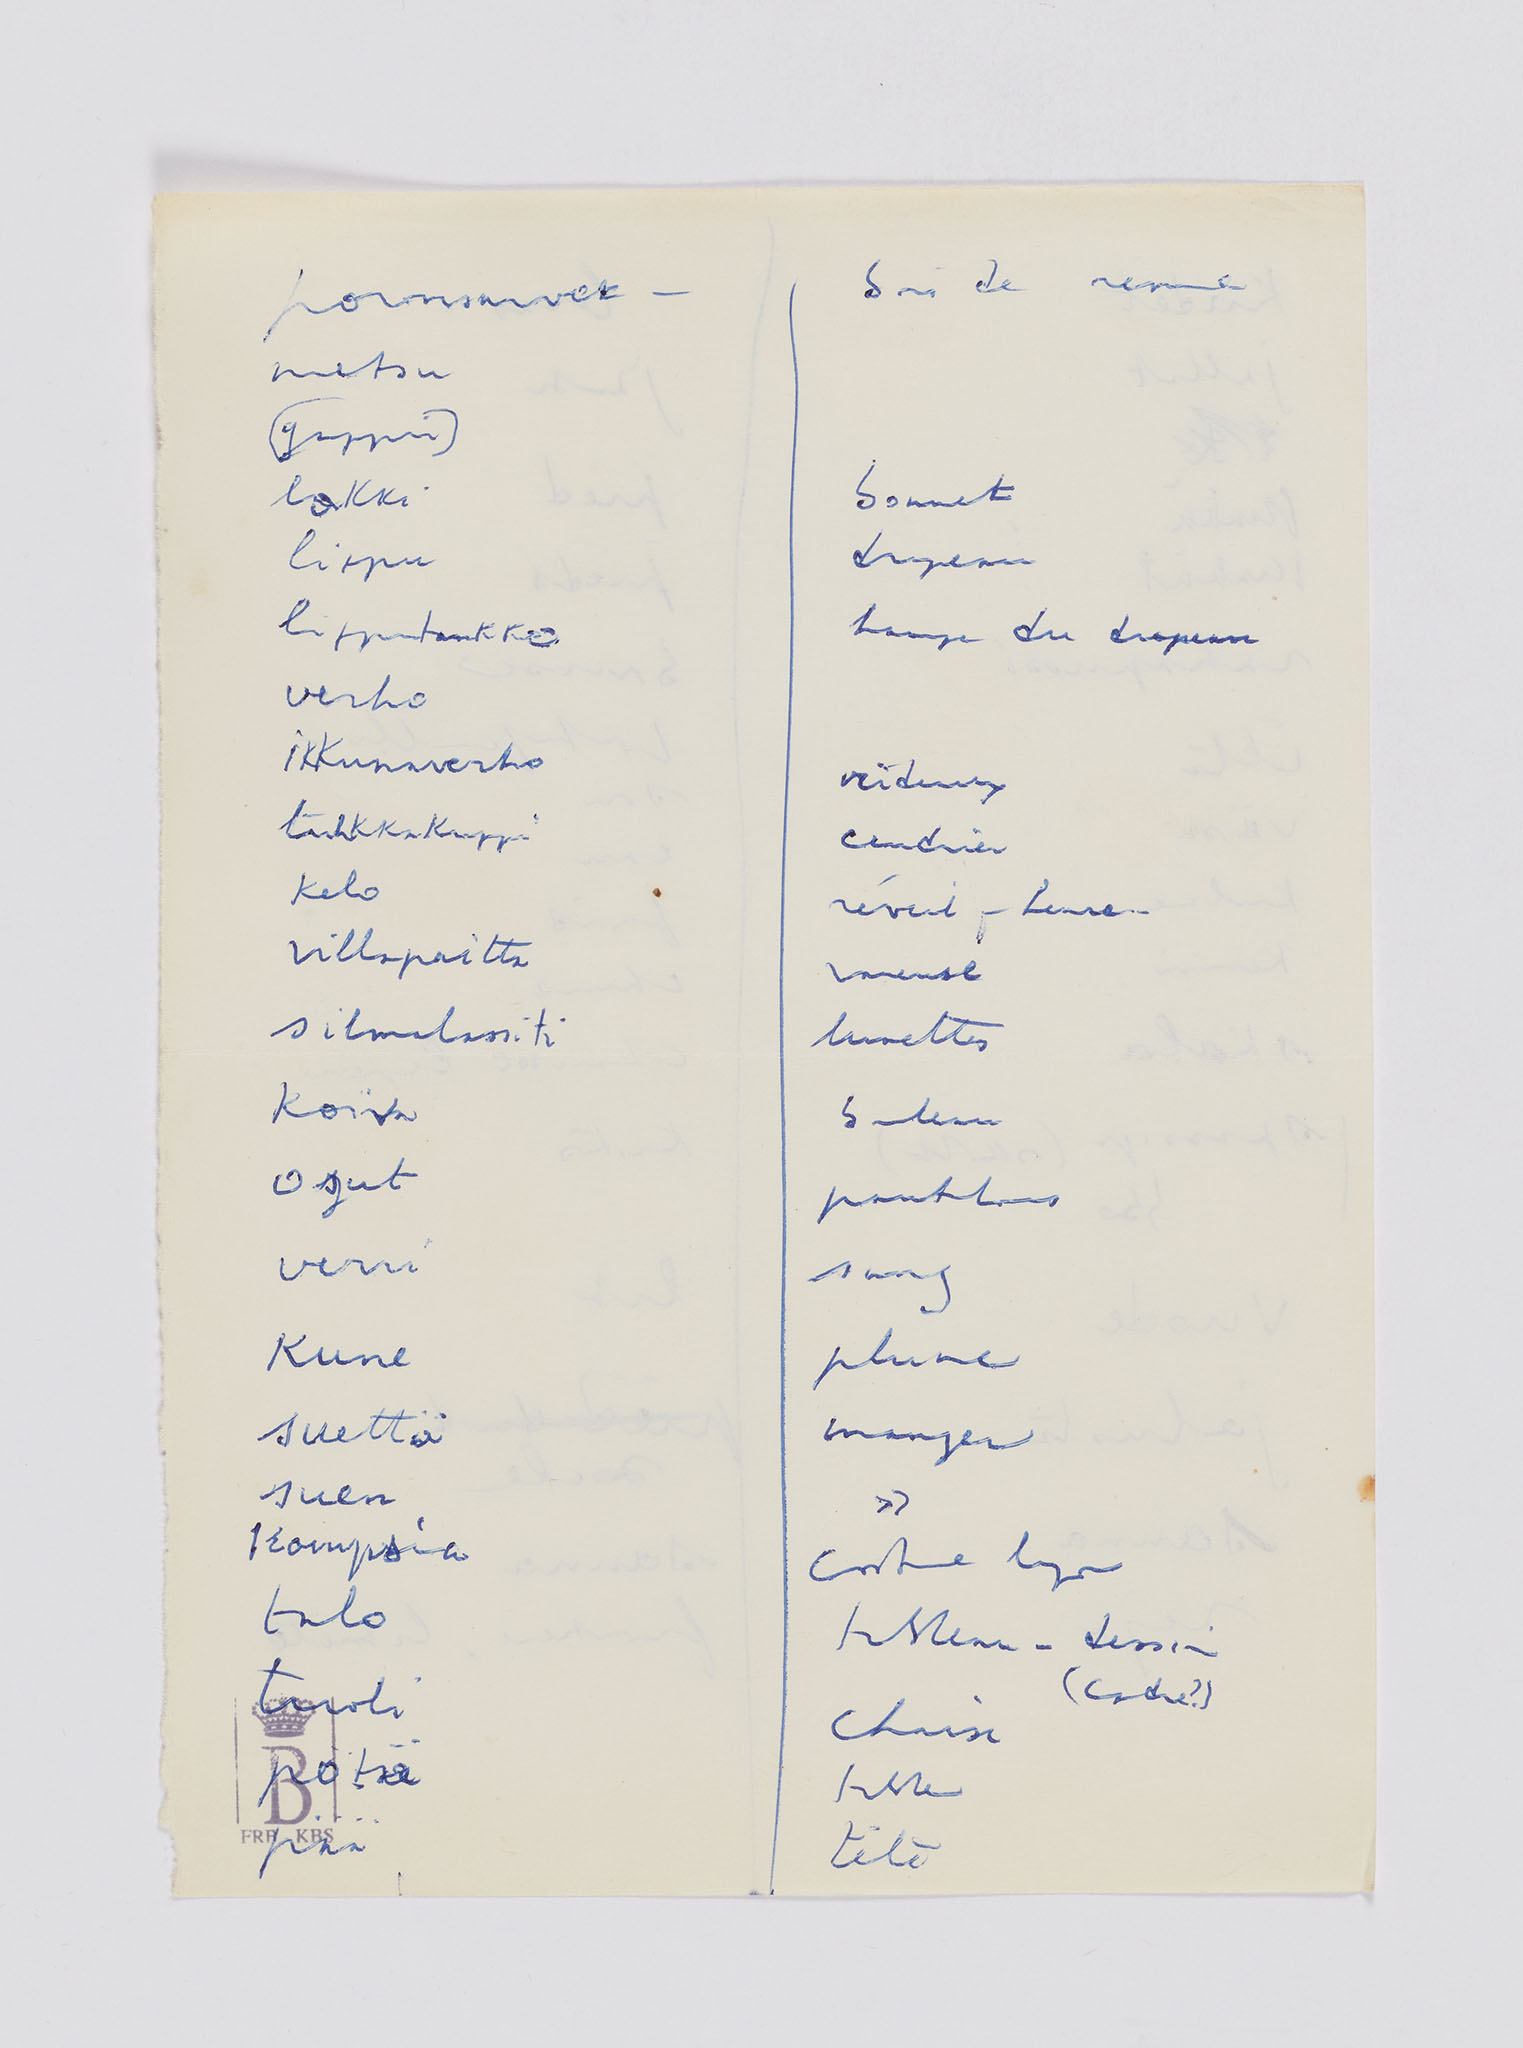 poronsarvek — bois de renne
metsu
(gappii)
lakki bonnet
lippu drapeau
lipputankko hampe du drapeau
verho
ikkunaverho rideaux
tuhkkakuppi cendrier
kelo réveil - heure
villapaitta vareuse
silmalassiti lunettes
Koiva bouleau
osjut pantalons
verri sang
Kune plume
suettä manger
suen »
Kompsia costume lapon
talo tableau - dessin
(cadre?)
tuoli chaise
pötsä table
pää tête
B
FRB KBS